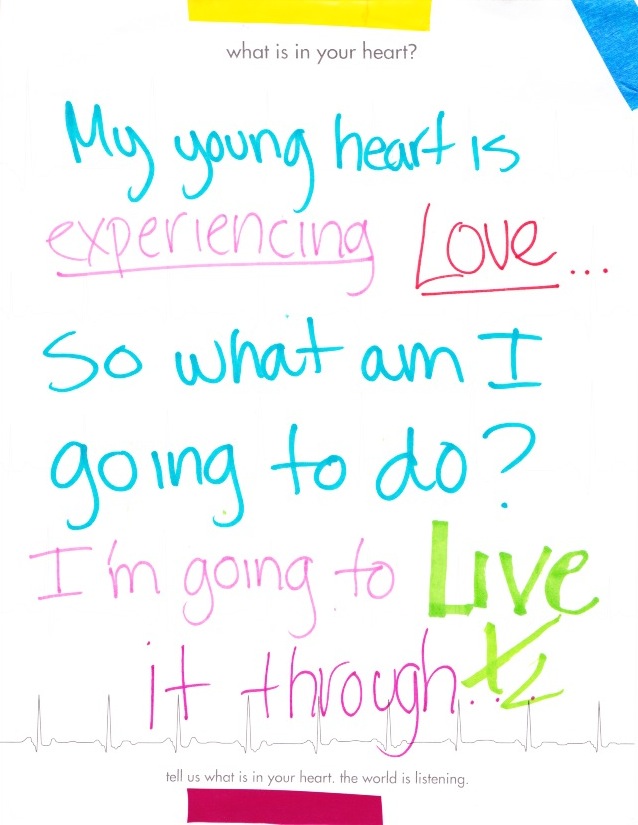 what is in your heart?
My young heart is
experiencing Love...
So what am I
going to do?
I'm going to Live
it through... X2
tell us what is in your heart. the world is listening.